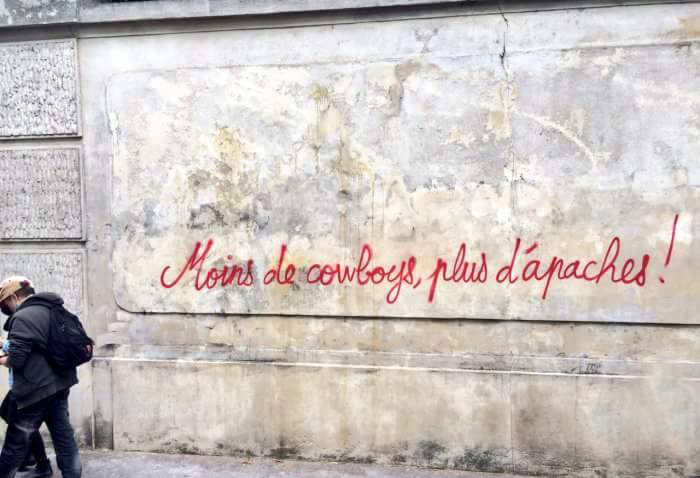 Moins de cowboys, plus d'apaches!